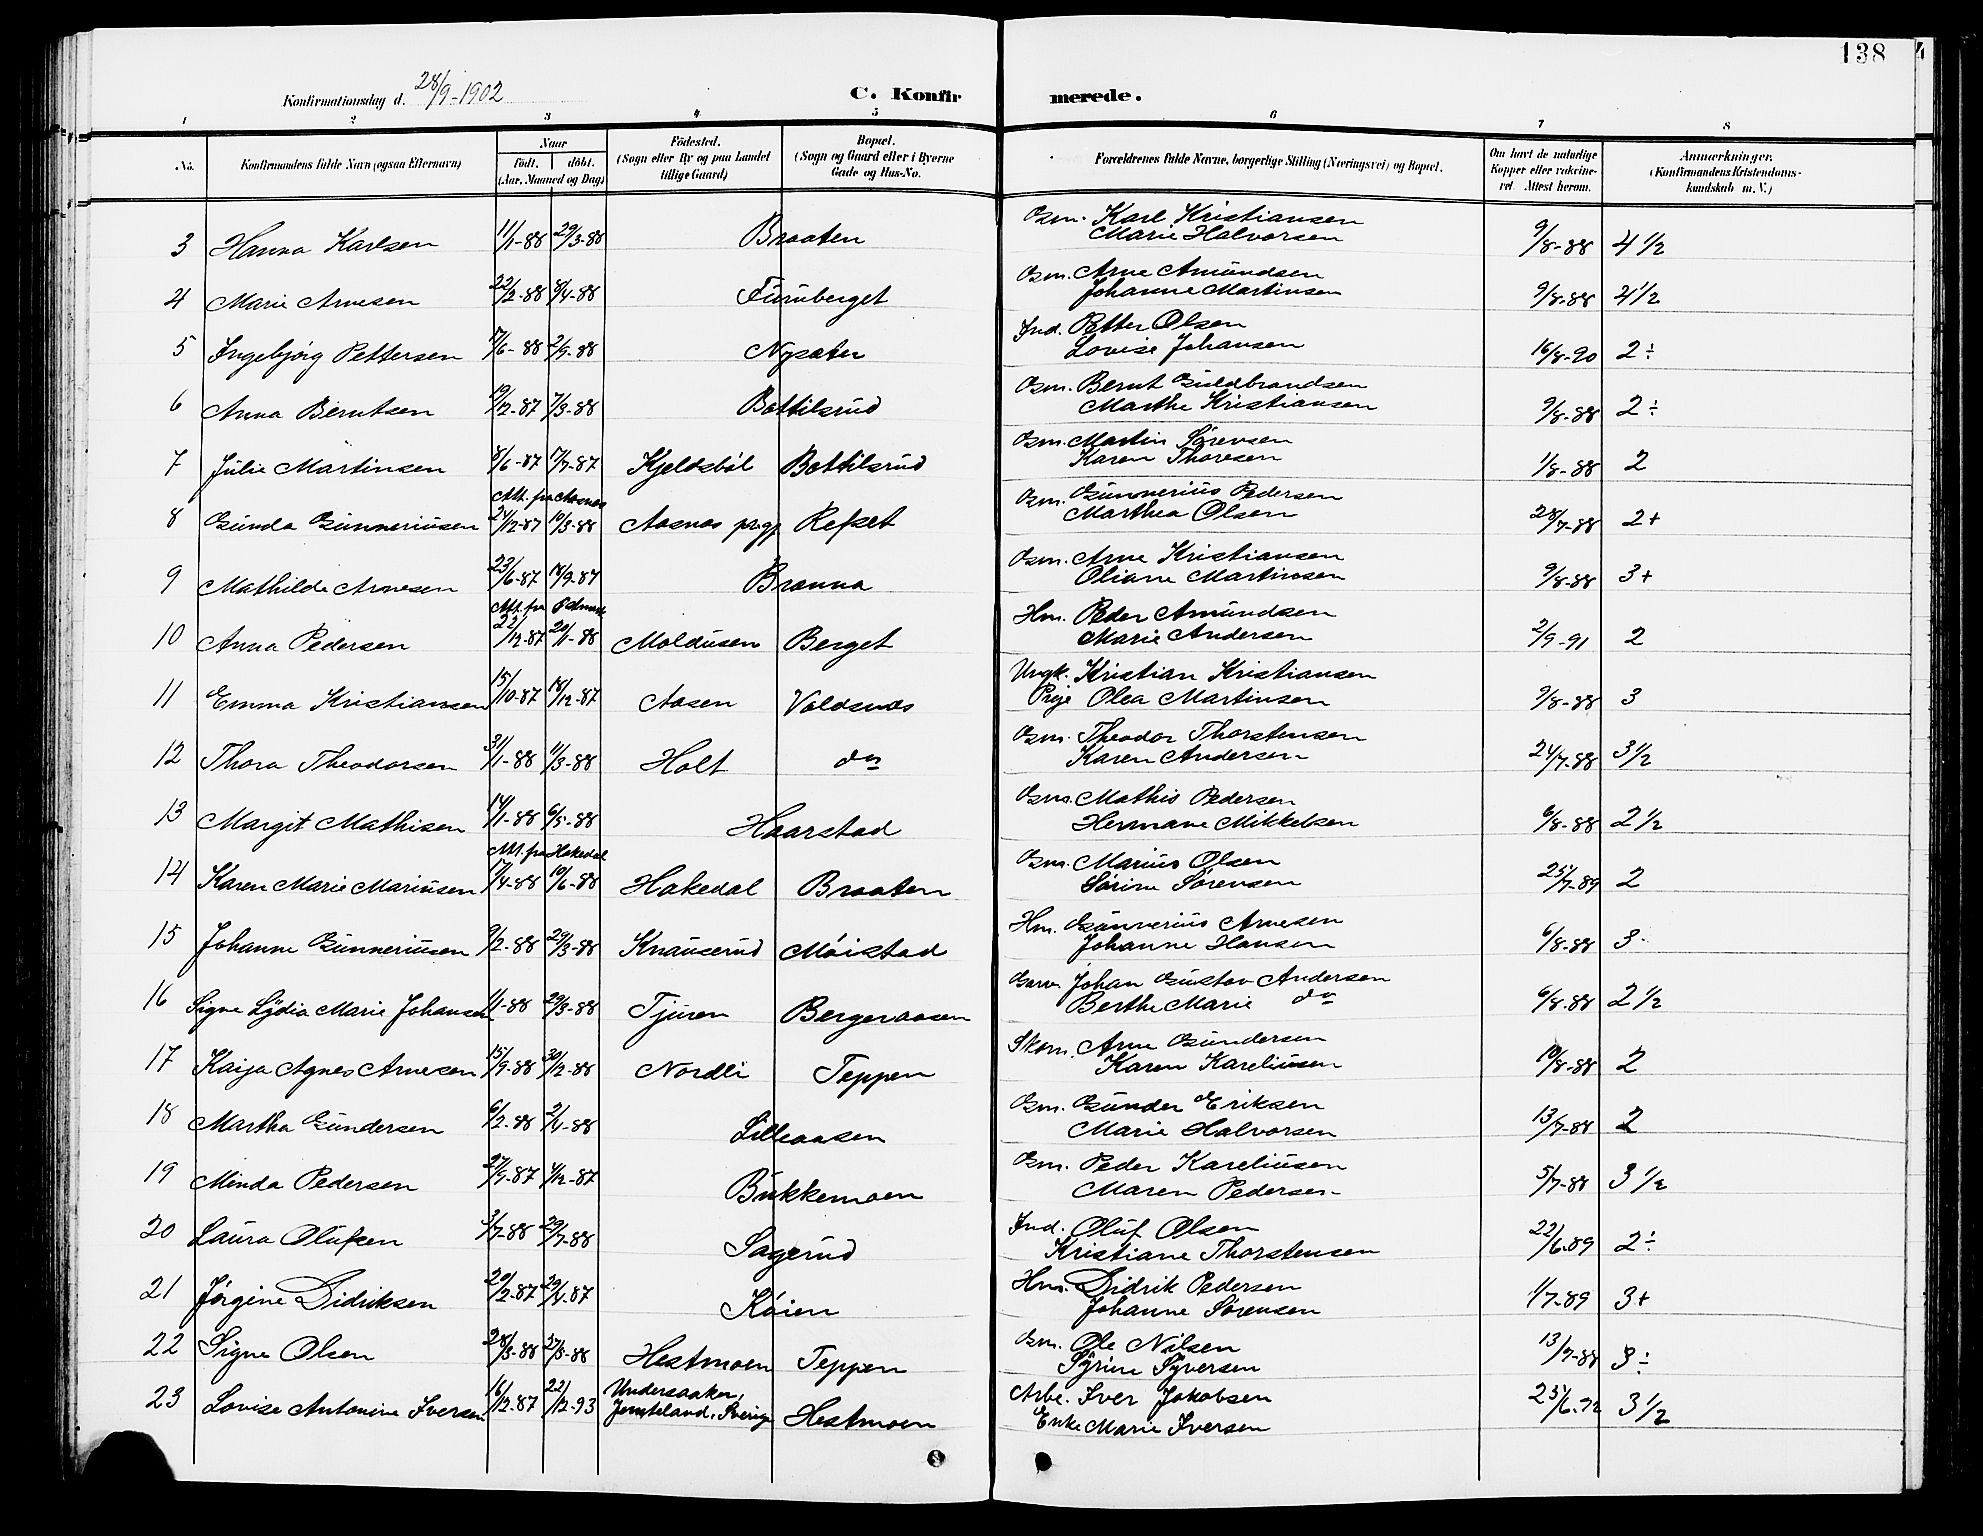 138
Konfirmationsdag d. 28/9-1902
C. Konfirmerede.
1 2 3 4 5 6 7 8
No. Konfirmandens fulde Navn (ogsaa Efternavn) Naar født. døbt. (Aar, Maaned og Dag) Fødested. (Sogn eller By og paa Landet tillige Gaard) Bopæl. (Sogn og Gaard eller i Byerne Gade og Hus-No. Forældrenes fulde Navne, borgerlige Stilling (Næringsvei) og Bopæl. Om havt de naturlige Kopper eller vakcineret. Attest herom. Anmærkninger. (Konfirmandens Kristendomskundskab m. V.)
3 Hanna Karlsen 11/1-88 29/3-88 Braaten Gsm. Karl Kristiansen 9/8-88 4 1/2
Marie Halvorsen
4 Marie Arnesen 22/2-88 8/4-88 Furuberget Gsm. Arne Amundsen 9/8-88 4 1/2
Johanne Martinsen
5 Ingebjørg Pettersen 7/6-88 2/9-88 Nysæter Ind. Petter Olsen 16/8-90 2÷
Lovise Johansen
6 Anna Berntsen 19/12-87 7/3-88 Bottilsrud Gsm. Bernt Guldbrandsen 9/8-88 2÷
Marthe Kristiansen
7 Julie Martinsen 8/6-87 17/7-87 Kjeldsbøl Bottilsrud Gsm. Martin Sørensen 1/8-88 2
Karen Thoresen
Att. fra Aasnæs
8 Gunda Gunneriusen 24/12-87 10/3-88 Aasnæs prgj. Refset Gsm. Gunnerius Pedersen 28/7-88 2+
Marthea Olsen
9 Mathilde Arnesen 23/6-87 18/9-87 Brænna Gsm. Arne Kristiansen 9/8-88 3+
Oliane Martinsen
Att. fra
10 Anna Pedersen 22/12-87 20/1-88 Moldusen Berget Hm. Peder Amundsen 2/9-91 2
Marie Andersen
11 Emma Kristiansen 15/10-87 18/12-87 Aasen Voldsnæs Ungk. Kristian Kristiansen 9/8-88 3
Pige Olea Martinsen
12 Thora Theodorsen 31/1-88 11/3-88 Holt do Gsm. Theodor Thorstensen 24/7-88 3 1/2
Karen Andersen
13 Margit Mathisen 14/1-88 6/5-88 Haarstad Gsm. Mathis Pedersen 6/8-88 2 1/2
Hermane Mikkelsen
Att. fra Hakedal
14 Karen Marie Mariusen 17/4-88 10/6-88 Hakedal Braaten Gsm. Marius Olsen 25/7-89 2
Sørine Sørensen
15 Johanne Gunneriusen 9/2-88 29/3-88 Knauserud Møistad Hm. Gunnerius Arnesen 6/8-88 3
Johanne Hansen
16 Signe Lydia Marie Johansen 1/1-88 29/3-88 Tjuren Bergeraasen Garv. Johan Gustav Andersen 6/8-88 2 1/2
Berthe Marie do
17 Kaija Agnes Arnesen 15/9-88 30/12-88 Nordli Teppen Skom. Arne Gundersen 10/8-88 2
Karen Kareliusen
18 Martha Gundersen 6/2-88 2/4-88 Lilleaasen Gsm. Gunder Eriksen 13/7-88 2
Marie Halvorsen
19 Minda Pedersen 27/9-87 4/12-87 Bukkemoen Gsm. Peder Kareliusen 5/7-88 3 1/2
Maren Pedersen
20 Laura Olufsen 3/7-88 29/7-88 Sagerud Ind. Oluf Olsen 22/6-89 2÷
Kristiane Thorstensen
21 Jørgine Didriksen 20/2-87 29/4-87 Køien Hm. Didrik Pedersen 1/7-89 3+
Johanne Sørensen
22 Signe Olsen 28/3-88 27/5-88 Hestmoen Teppen Gm. Ole Nilsen 13/7-88 3÷
Syrine Syversen
23 Lovise Antonine Iversen 16/12-87 22/12-93 Undersaaker, Jemteland, Sverige Hestmoen Arbe. Iver Jakobsen 25/6-92 3 1/2
Enke Marie Iversen